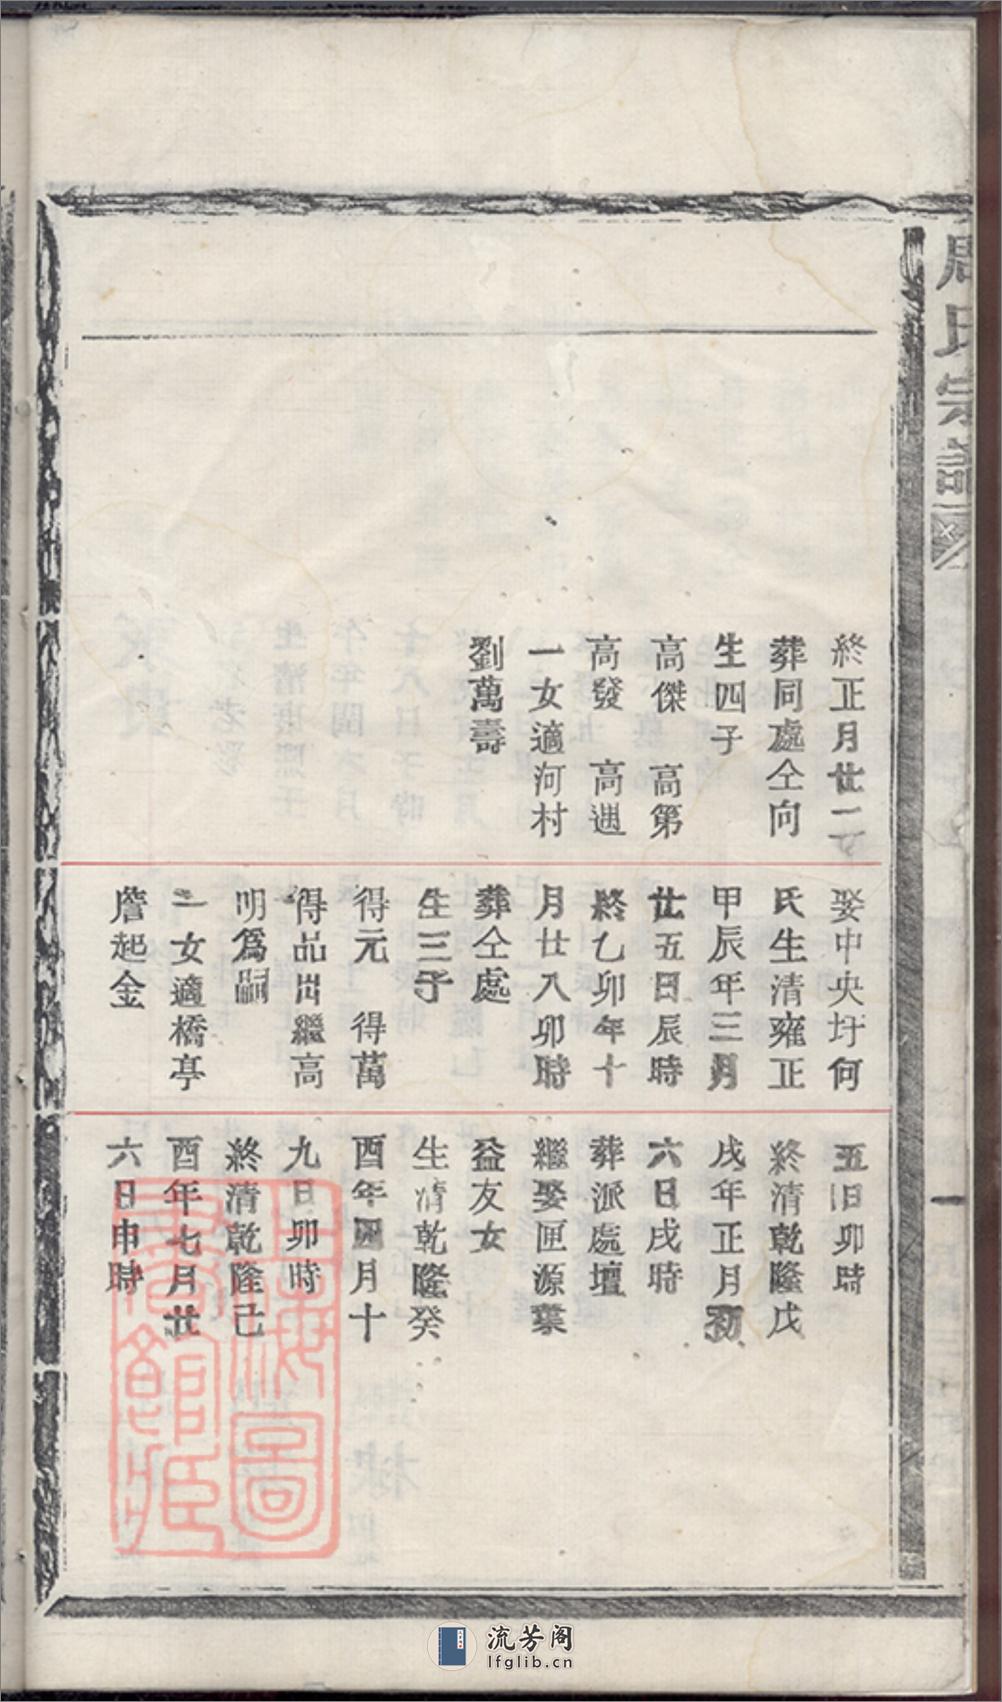 周氏宗譜
終正月廿一
葬同處仝向
生四子
高傑　高第
高發　高遇
一女適河村
劉萬壽
娶中央圩何
氏生清雍正
甲辰年三月
廿五日辰時
終乙卯年十
月廿八卯時
葬仝處
生三子
得元　得萬
得品出繼高
明爲嗣
二女適橋亭
詹起金
五日卯時
終清乾隆戊
戌年正月初
六日戌時
葬派處壇
繼娶匣源葉
益友女
生清乾隆癸
酉年四月十
九日卯時
終清乾隆己
酉年七月廿
六日申時
一
上海圖
書館藏
流芳阁
lfglib.cn